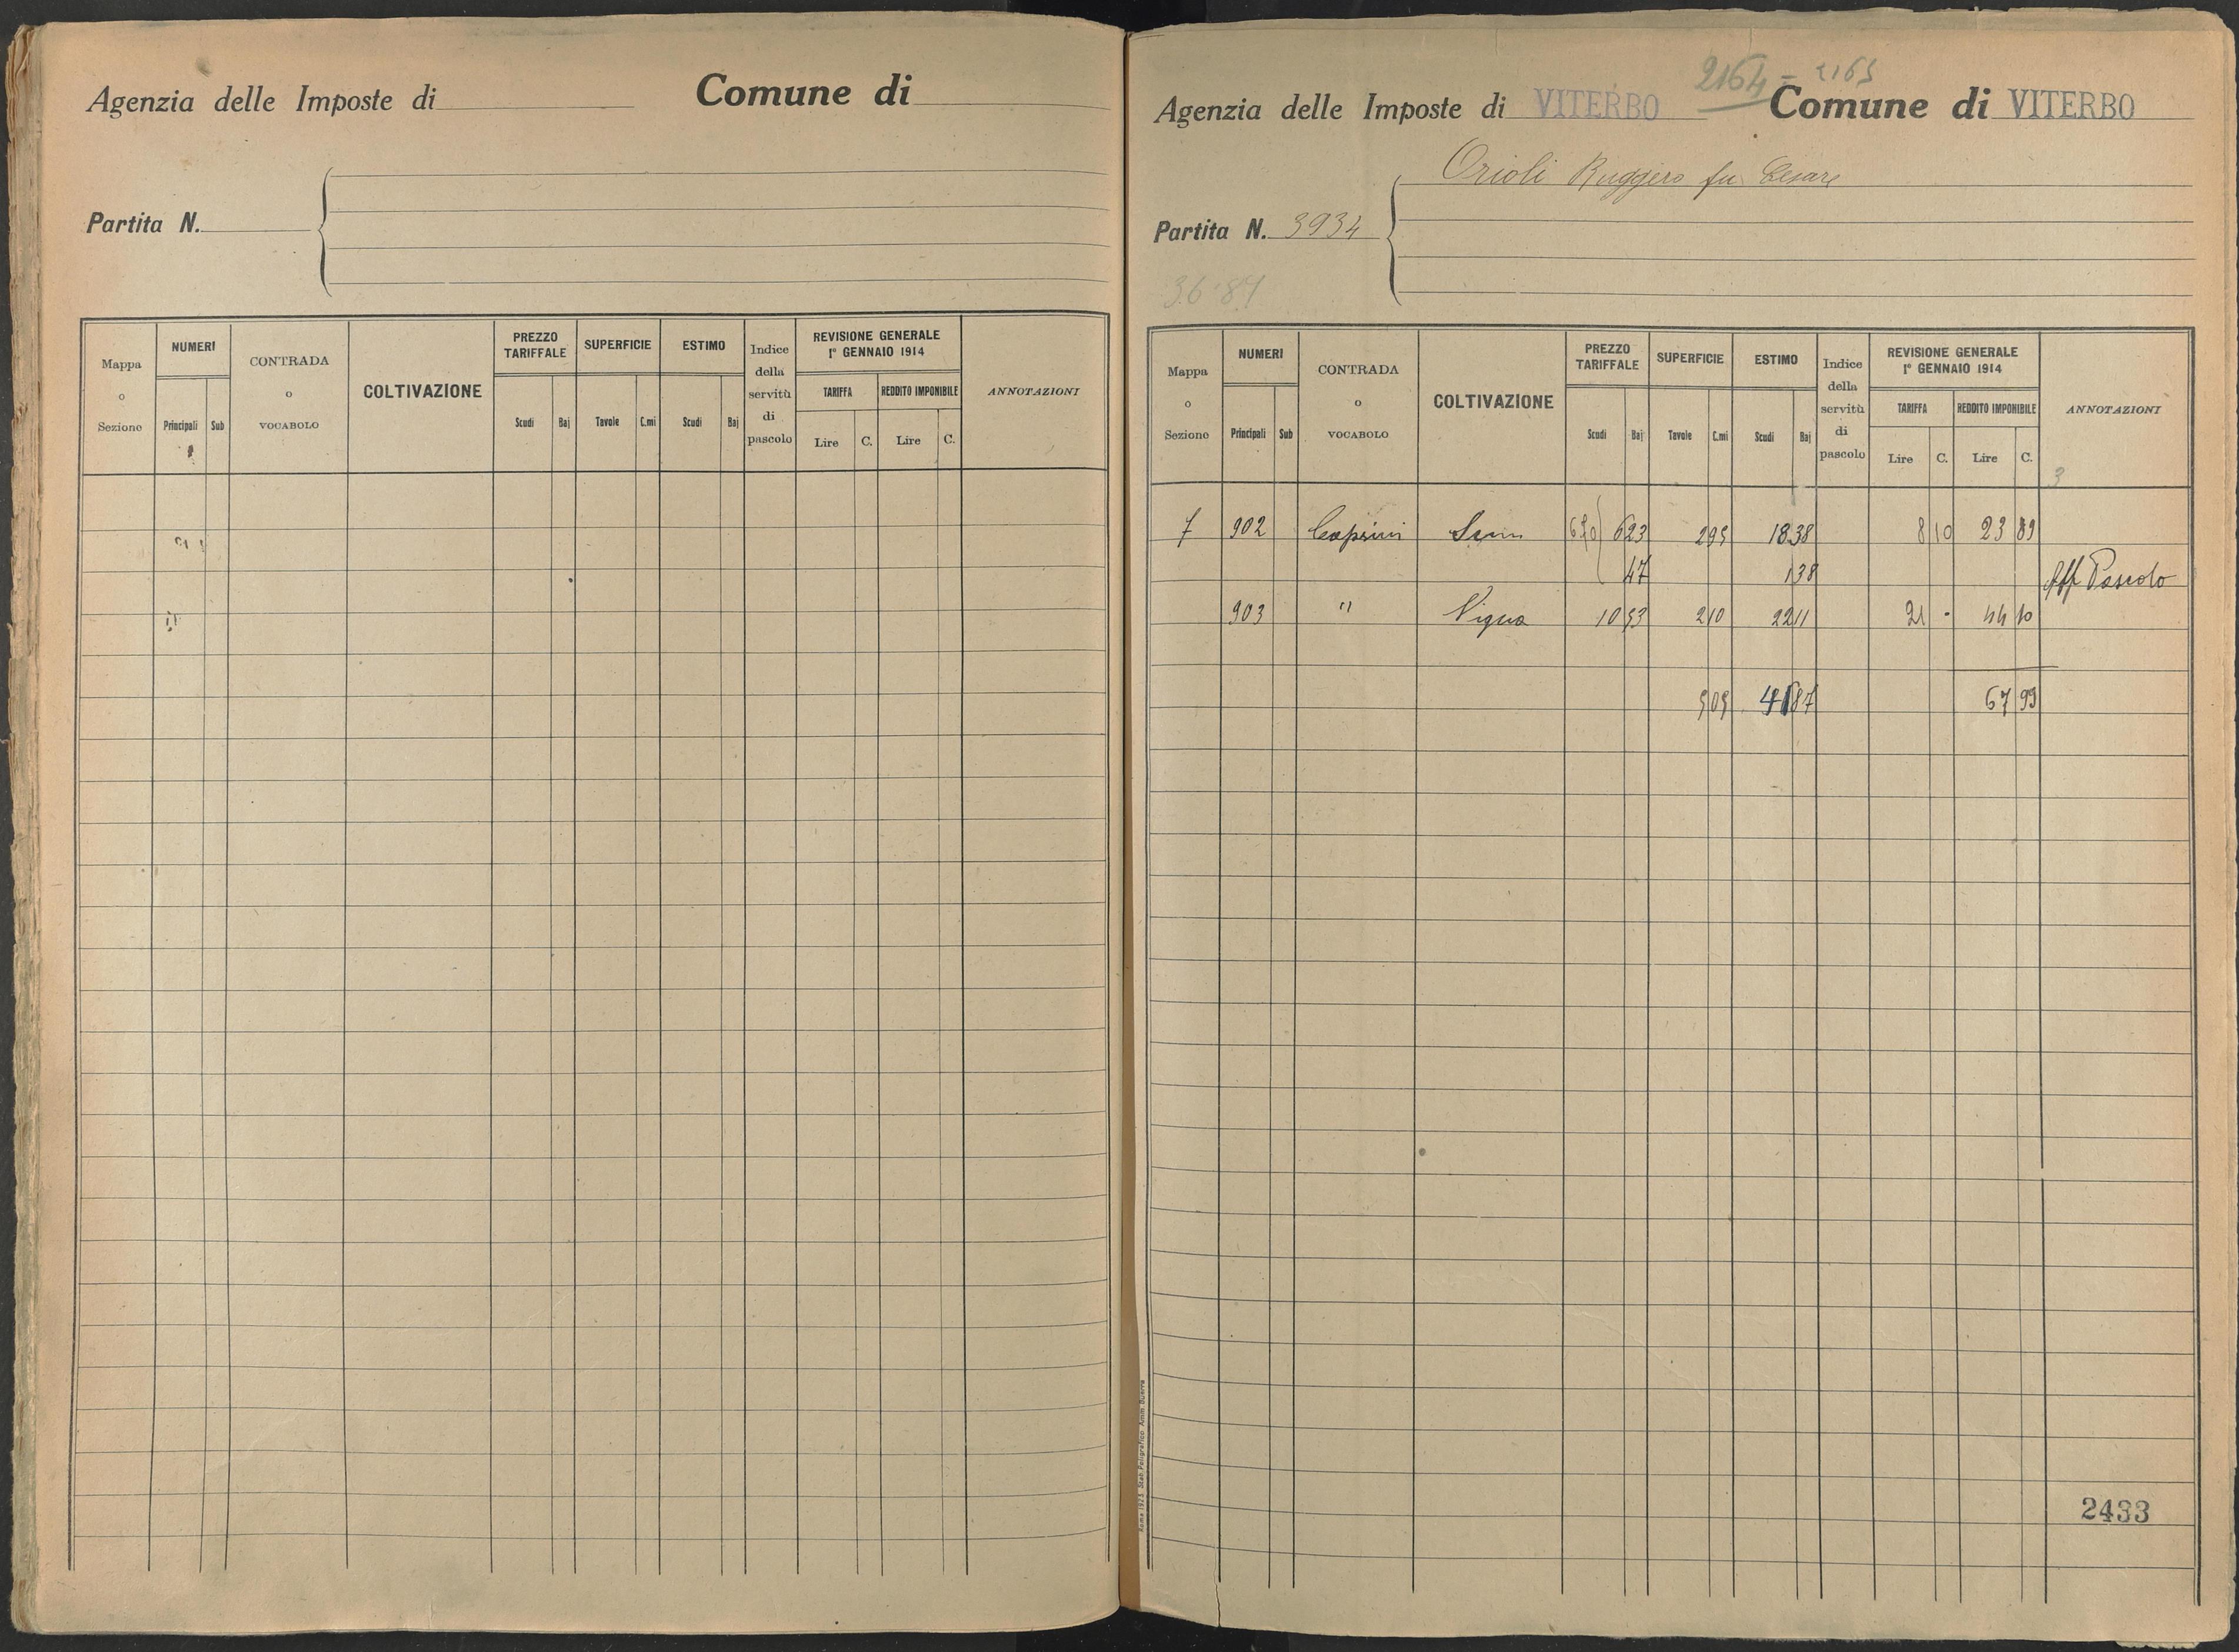 Agenzia delle Imposte di Comune di
Partita N.
Mappa o Sezione NUMERI Principali Sub CONTRADA o VOCABOLO COLTIVAZIONE PREZZO TARIFFALE Scudi Baj SUPERFICIE Tavole C.mi ESTIMO Scudi Baj Indice della servitù di pascolo REVISIONE GENERALE 1° GENNAIO 1914 TARIFFA Lire C. REDDITO IMPONIBILE Lire C. ANNOTAZIONI
2164 = 2165
Agenzia delle Imposte di VITERBO Comune di VITERBO
Orioli Ruggero fu Cesare
Partita N. 3934
3687
Mappa o Sezione NUMERI Principali Sub CONTRADA o VOCABOLO COLTIVAZIONE PREZZO TARIFFALE Scudi Baj SUPERFICIE Tavole C.mi ESTIMO Scudi Baj Indice della servitù di pascolo REVISIONE GENERALE 1° GENNAIO 1914 TARIFFA Lire C. REDDITO IMPONIBILE Lire C. ANNOTAZIONI
3
7 902 Caprini Sem 670 6 23 2 95 18 38 8 10 23 89
47 1 38 Aff Pascolo
903 " Vigna 10 53 2 10 22 11 21 - 44 10
5 05 41 87 67 99
Roma 1923 Stab. Poligrafico Amm. Guerra
2433